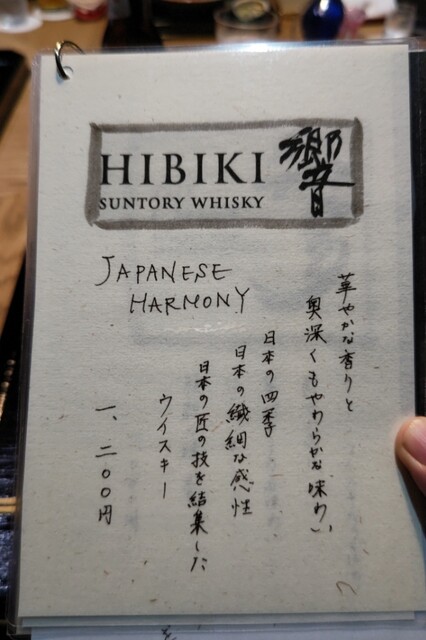 HIBIKI 響
SUNTORY WHISKY
JAPANESE
HARMONY
華やかな香りと
奥深くもやわらかな味わい
日本の四季
日本の繊細な感性
日本の匠の技を結集した
ウイスキー
一、二〇〇円